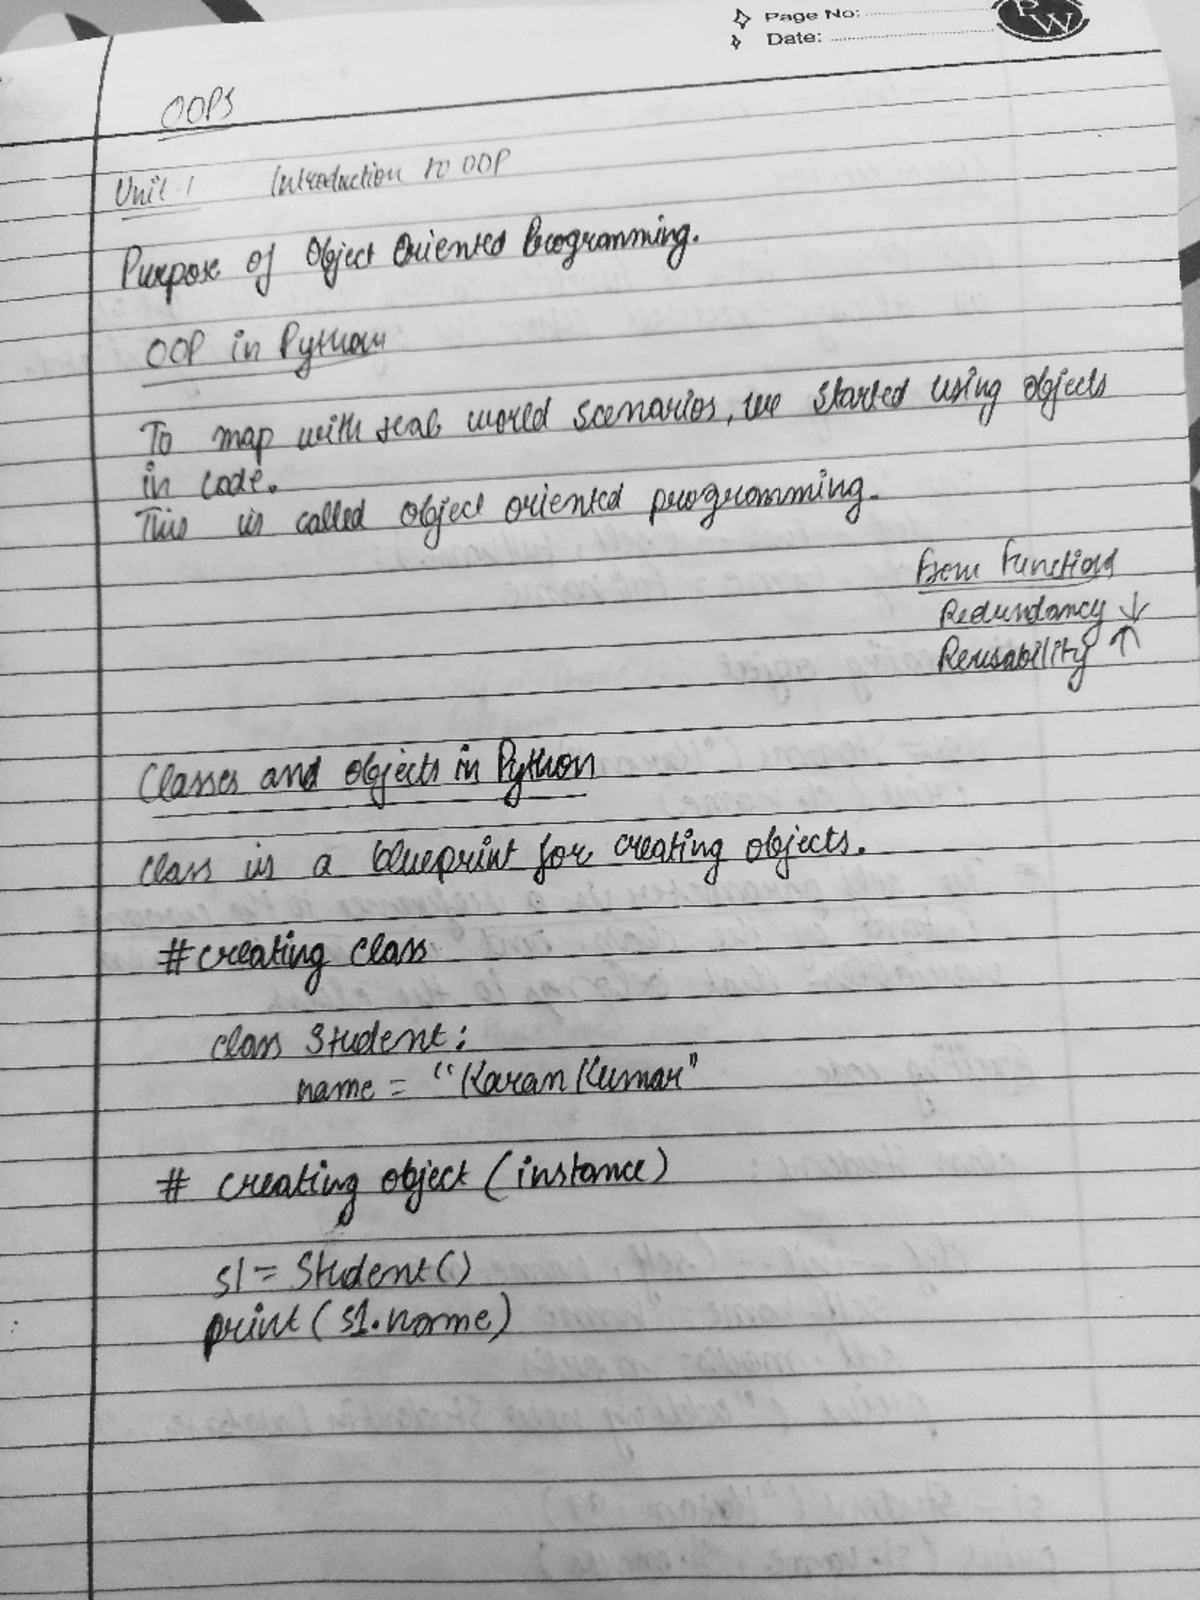 Page No:
Date:
PW
OOPS
Unit 1 Introduction to OOP
Purpose of Object Oriented Programming.
OOP in Python
To map with real world scenarios, we started using objects
in code.
This is called object oriented programming.
From Functions
Redundancy ↓
Reusability ↑
Classes and objects in Python
Class is a blueprint for creating objects.
# creating class
class Student:
name = "Karan Kumar"
# creating object (instance)
s1 = Student()
print(s1.name)